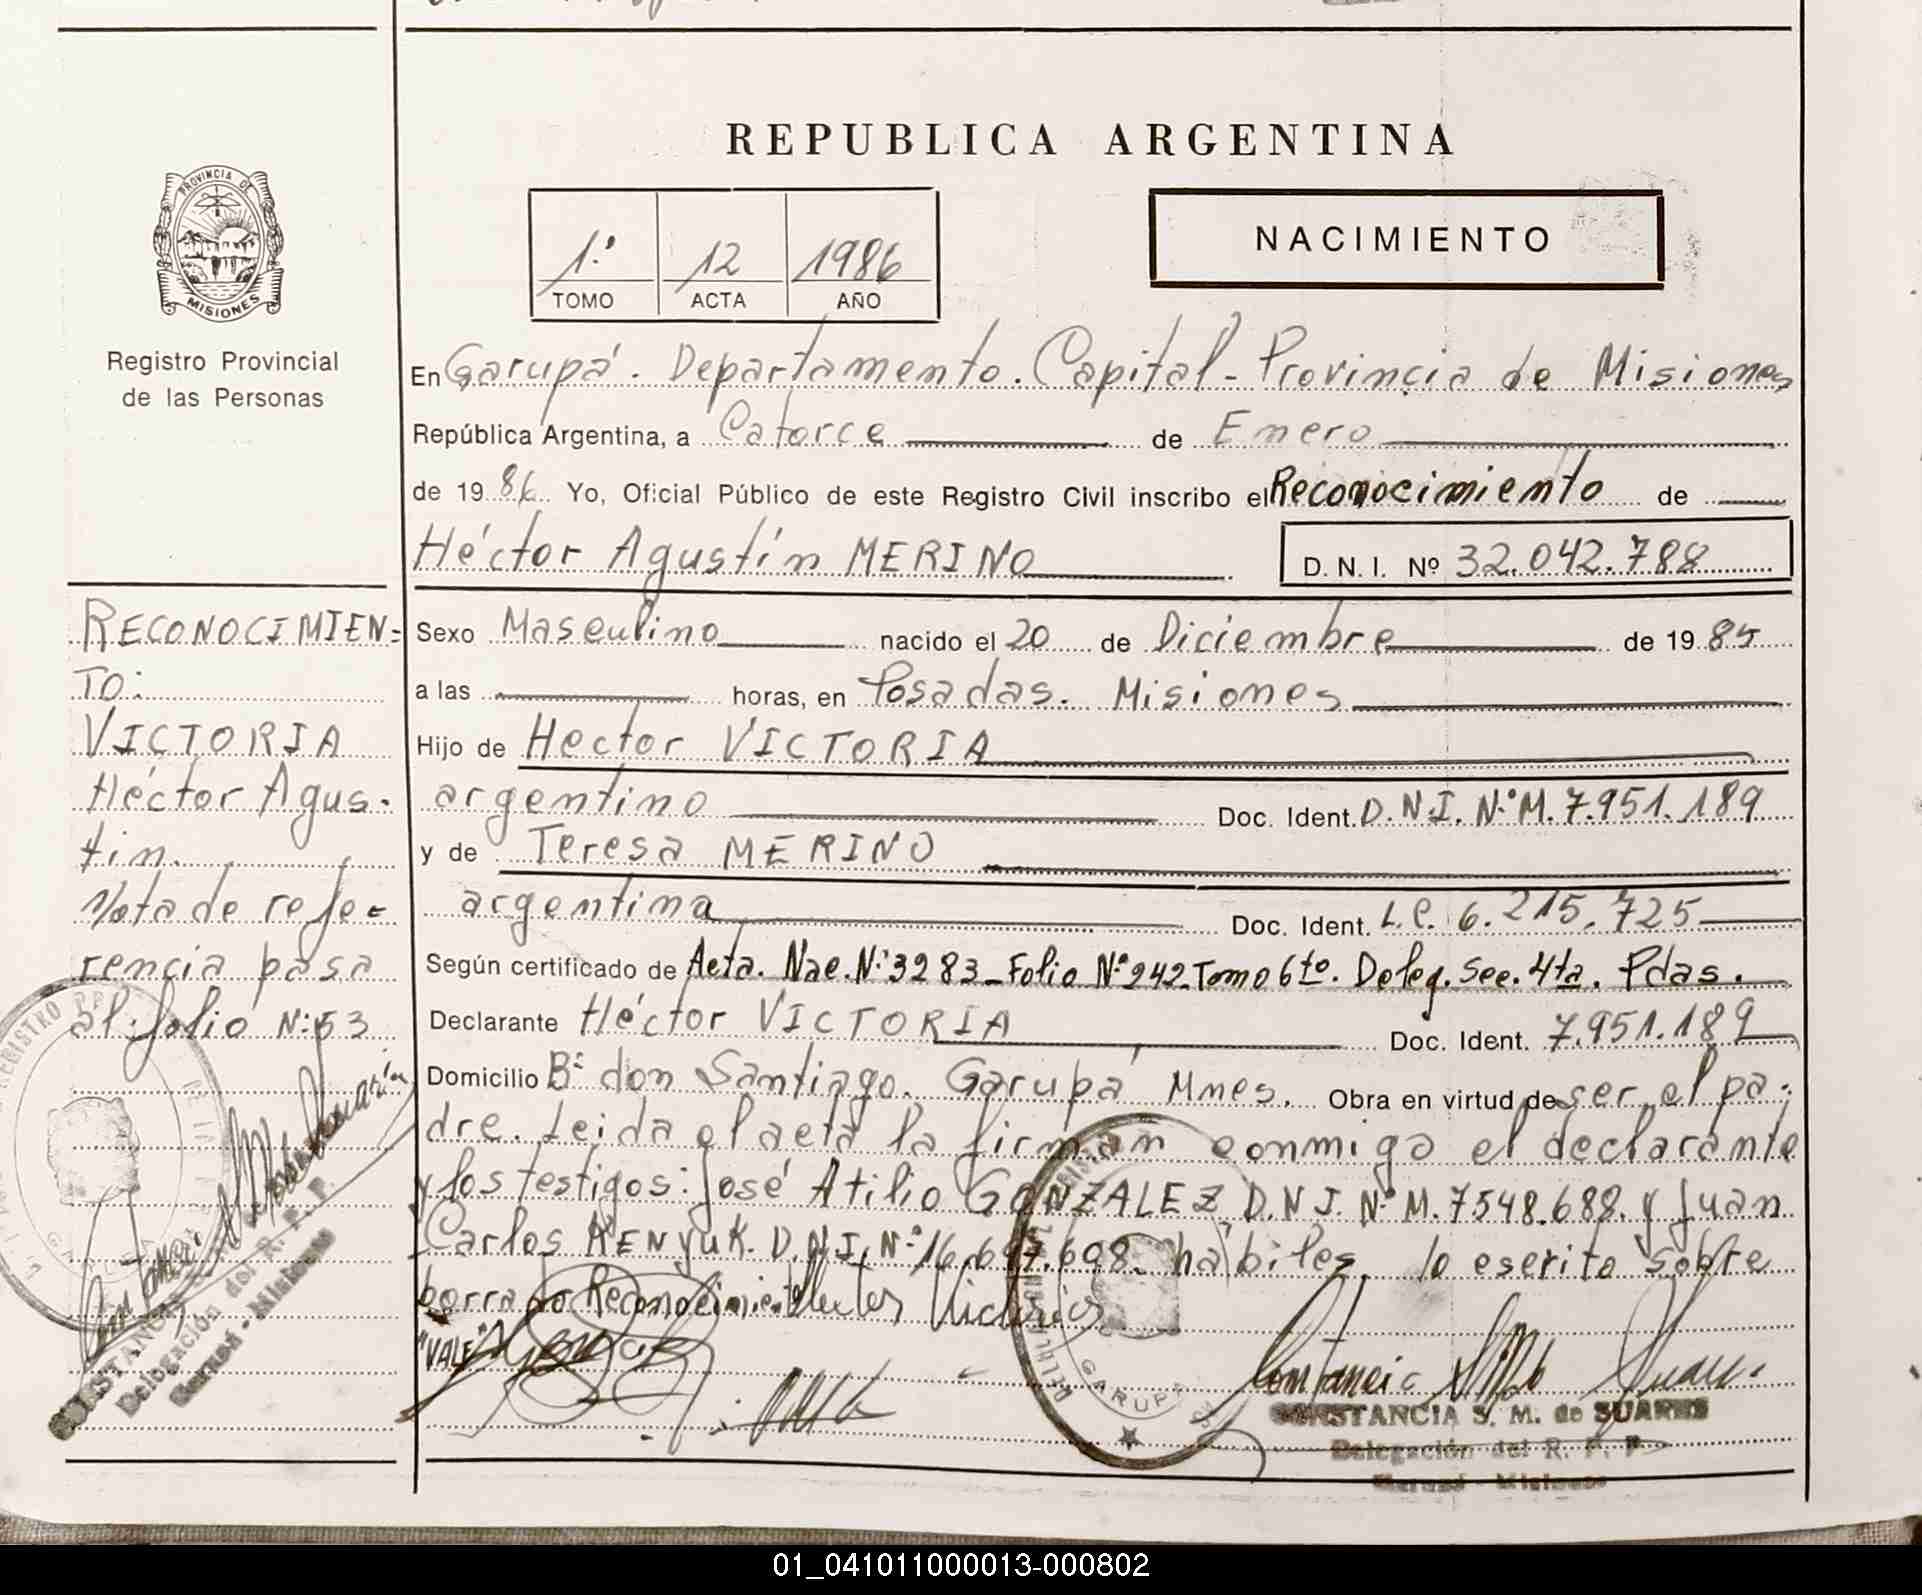 REPUBLICA ARGENTINA
PROVINCIA DE
MISIONES
Registro Provincial
de las Personas
1º
12
1986
TOMO
ACTA
AÑO
NACIMIENTO
En Garupá. Departamento. Capital - Provincia de Misiones
República Argentina, a Catorce de Enero
de 1986. Yo, Oficial Público de este Registro Civil inscribo el Reconocimiento de
Héctor Agustín MERINO
D. N. I. Nº 32.042.788
Sexo Masculino nacido el 20 de Diciembre de 1985
a las horas, en Posadas. Misiones
Hijo de Hector VICTORIA
argentino Doc. Ident. D.N.I. Nº M. 7.951.189
y de Teresa MERINO
argentina Doc. Ident. L.C. 6.215.725
Según certificado de Acta. Nac. Nº 3283 - Folio Nº 242 - Tomo 6to. Deleg. Sec. 4ta. Pdas.
Declarante Héctor VICTORIA Doc. Ident. 7.951.189
Domicilio Bº don Santiago. Garupá Mnes. Obra en virtud de ser el pa-
dre. Leida el acta la firman conmigo el declarante
y los testigos: José Atilio GONZALEZ D.N.I. Nº M. 7548.688. y Juan
Carlos D.N.I. Nº habiles, lo escrito sobre
borrado Reconocimiento
"VALE"
Hector Victoria
GARUPA
CONSTANCIA S. M. de SUARES
Delegación del R. P. P.
Garupá - Misiones
RECONOCIMIEN=
TO:
VICTORIA
Héctor Agus-
tin.
Nota de refe-
rencia pasa
al folio Nº 53
CONSTANCIA
Delegación del R. P. P.
Garupá - Misiones
01_041011000013-000802